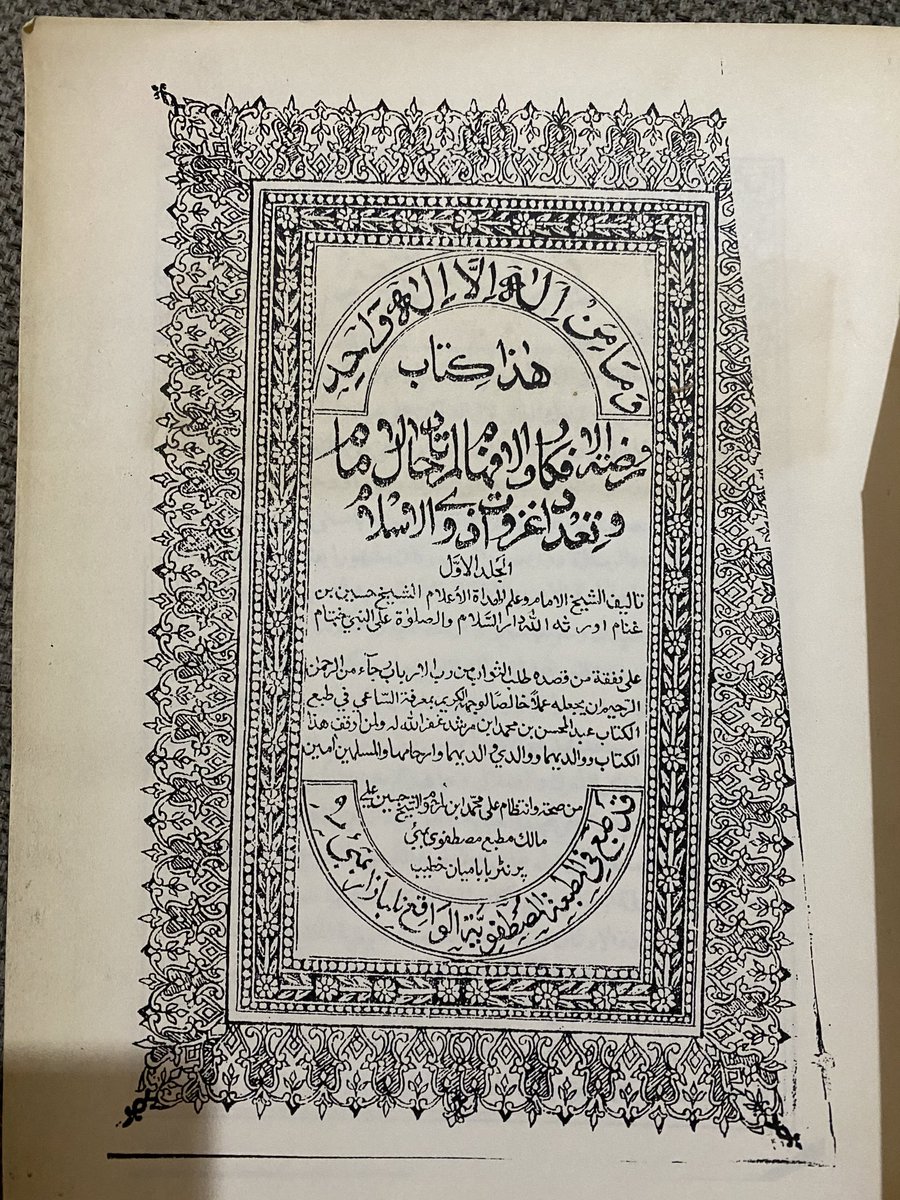 وَمَا مِنْ اِلٰهٍ اِلَّا اِلٰهٌ وَاحِدٌ
هٰذا كِتَاب
روضة الافكار والافهام لمرتاد حال الامام
وتعداد غزوات ذوي الاسلام
المجلد الاوّل
تاليف الشيخ الامام وعلم الهداة الأعلام الشيخ حسين بن
غنام اورثه الله دار السّلام والصلوٰة على النبي ختام
على نفقة من قصده طلب الثواب من رب الارباب رجآء من الرحمٰن
الرحيم ان يجعله عملًا خالصًا لوجهه الكريم بمعرفة السّاعي في طبع
الكتاب عبد المحسن بن محمد ابن مرشد غفر الله له ولمن اوقف هذا
الكتاب ووالديهما ووالدي والديهما وارحامهما والمسلمين اٰمين
من صحة وانتظام على محمد ابن والشيخ حسين علي
مالك مطبع مصطفوي بمبئ
پرنٹر بابا ميان خطيب
قد طبع في المطبعة المصطفويّة الواقع